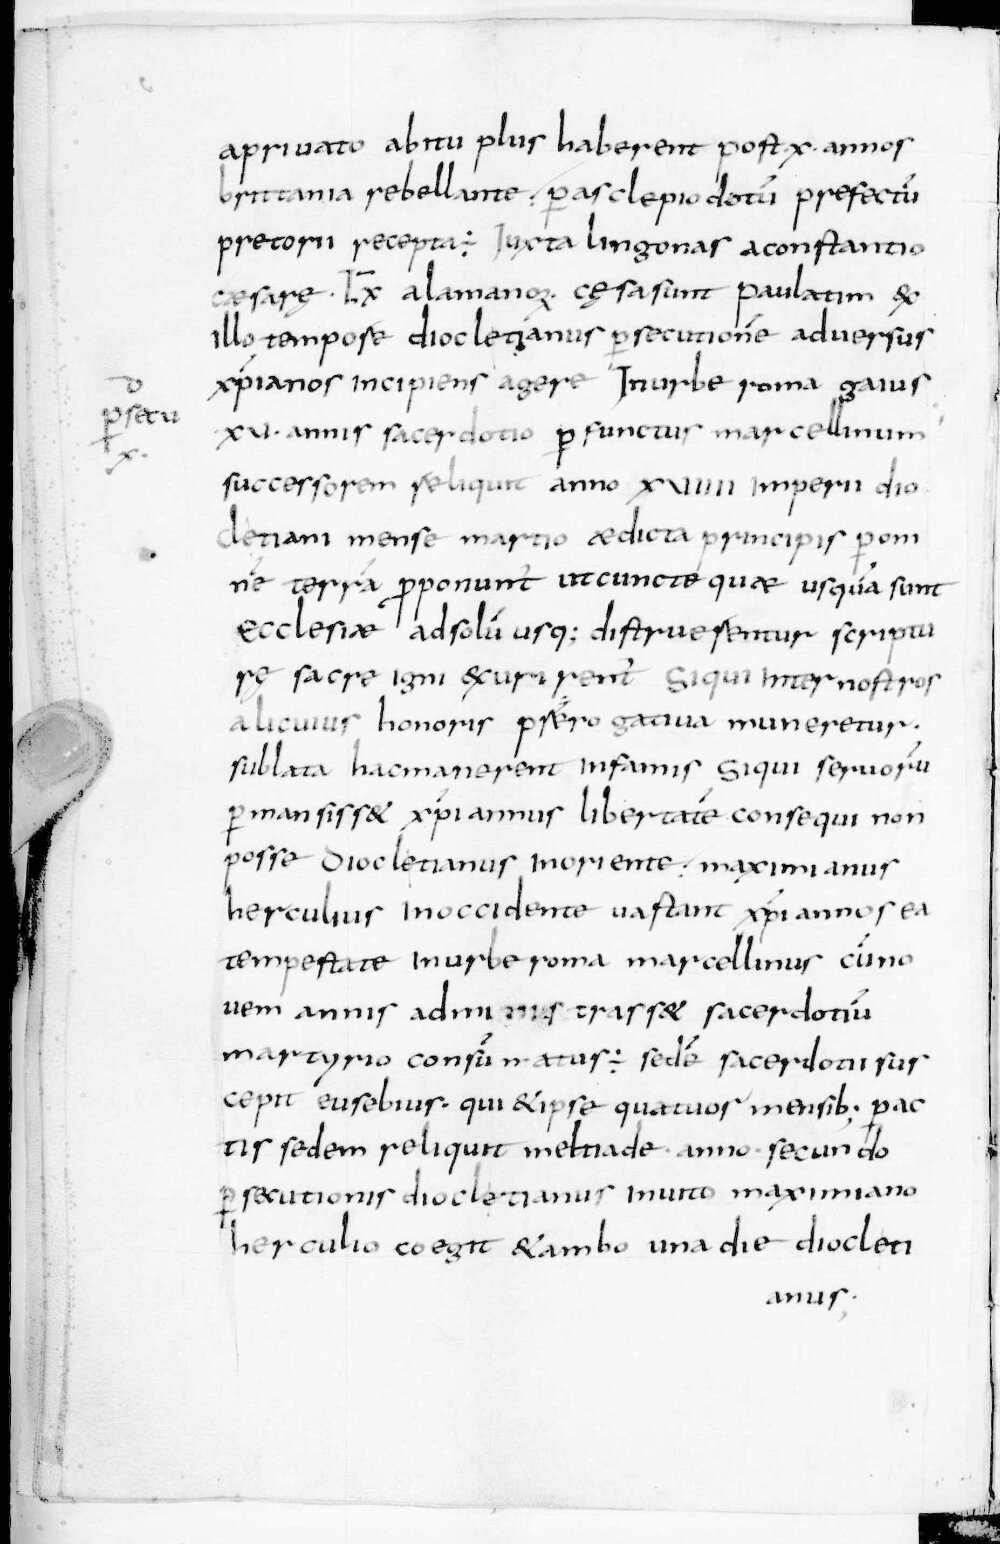 apriuato abitu plus haberent post x· annos
brittania rebellante· p̱asclepiodotū prefectū
pretorii recepta⁖ Iuxta lingonas aconstantio
cæsarę· Lx alamanoꝝ· cęsasunt paulatim &
illo tempore diocletianus p̱secutionē aduersus
xp̄ianos incipiens agere Inurbe roma gaius
xvi· annis sacerdotio ꝑfunctus marcellinum
ꝑsecu
x·
successorem reliquit anno xviiii imperii dio
cletiani mense martio ædicta principis ꝑom
nē terrā ꝓponunt̄ utcuncte quæ usquā sunt
Ecclesiæ adsolū usq; distruerentur scriptu
rę sacre igni &xurirent̄ Siqui inter nostros
alicuius honoris prero gatiua muneretur·
sublata hacmanerent infamis Siqui seruorū
ꝑmansiss& xp̄iannus libertatē consequi non
posse Diocletianus inoriente· maximianus
herculius inoccidente uastant xp̄iannos ea
tempestate inurbe roma marcellinus cūno
uem annis admi nis trass& sacerdotiū
martyrio consūmatus⁖ sedē sacerdotii sus
cepit eusebius· qui &ipse quatuor mensib; ꝑac
tis sedem reliquit meltiade· anno· secundo
ꝑsecutionis diocletianus inuito maximiano
herculio coegit &ambo una die diocleti
anus;